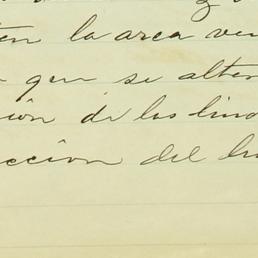 ten la area ve
que se alter
ión de los lino
cción del